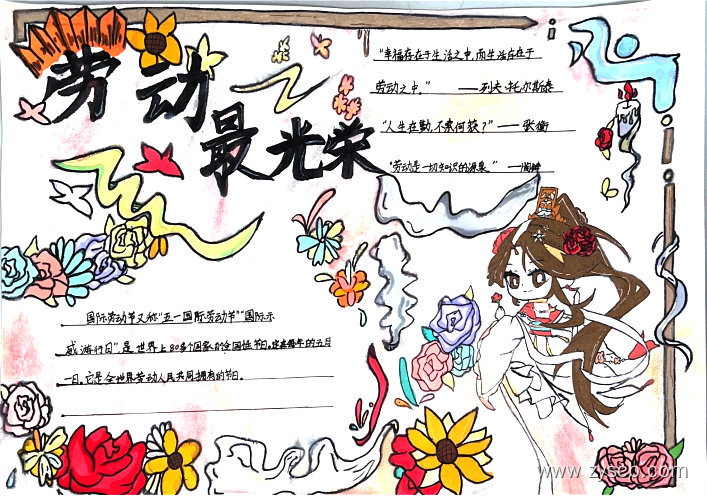 劳动
最光荣
"幸福存在于生活之中,而生活存在于
劳动之中。" ——列夫·托尔斯泰
"人生在勤,不索何获?"——张衡
"劳动是一切知识的源泉。"——陶铸
国际劳动节又称"五一国际劳动节""国际示
威游行日",是世界上80多个国家的全国性节日。定在每年的五月
一日。它是全世界劳动人民共同拥有的节日。
www.zyseo.com